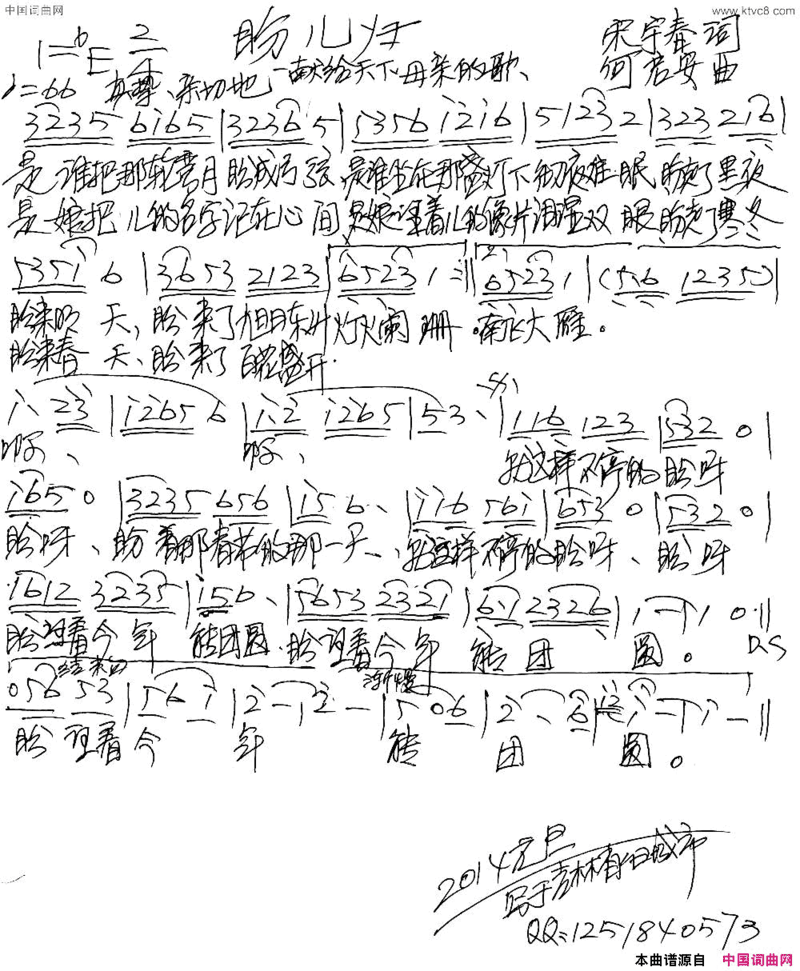 中国词曲网 www.ktvc8.com
盼儿归 宋宇春 词
1=bE 2/4 何君安 曲
♩=66 真挚、亲切地 —献给天下母亲的歌、
3235 6i65 | 3236 5 | 5356 i2i6 | 5123 2 | 323 2i6 |
是谁把那轮弯月盼成弓弦 是谁坐在那盏灯下彻夜难眠 盼走了黑夜
是娘把儿的名字记在心间 是娘望着儿的像片泪湿双眼 盼走了寒冬
535i 6 | 3653 2123 | 6523 1 :‖ 6523 1 | (5.6 1235) |
盼来明天、盼来了旭日东升 灯火阑珊。南飞大雁。
盼来春天、盼来了百花盛开
i. 23 | i265 6 | i.2 i265 | 53. | 116 123 | 532 0 |
啊、 啊、 就这样不停的盼呀
i65 0 | 3235 656 | i56. | ii6 56i | 653 0 | 532 0 |
盼呀、盼着那春节的那一天、就这样不停的盼呀、盼呀
1612 3235 | i56. | 5653 2321 | 6.1 2326 | 1 - | 1 0 :‖
盼望着今年 能团圆. 盼望着今年 能团圆。 D.S
结束句 渐慢
056 53 | 56 i | 2 - | 2 - | 5 06 | 2. 6 | i - | i - ‖
盼望着今年 能团圆。
2014元旦
写于吉林省白城市
QQ:1251840573
本曲谱源自 中国词曲网